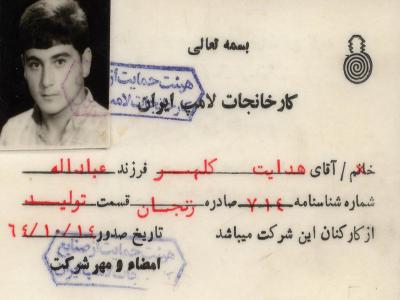 بسمه تعالی
کارخانجات لامپ ایران
خانم / آقای هدایت کلهر فرزند عباداله
شماره شناسنامه ۷۱۴ صادره زنجان قسمت تولید
از کارکنان این شرکت میباشد تاریخ صدور ۶۴/۱۰/۱۴
امضاء و مهر شرکت
هیئت حمایت از صنایع